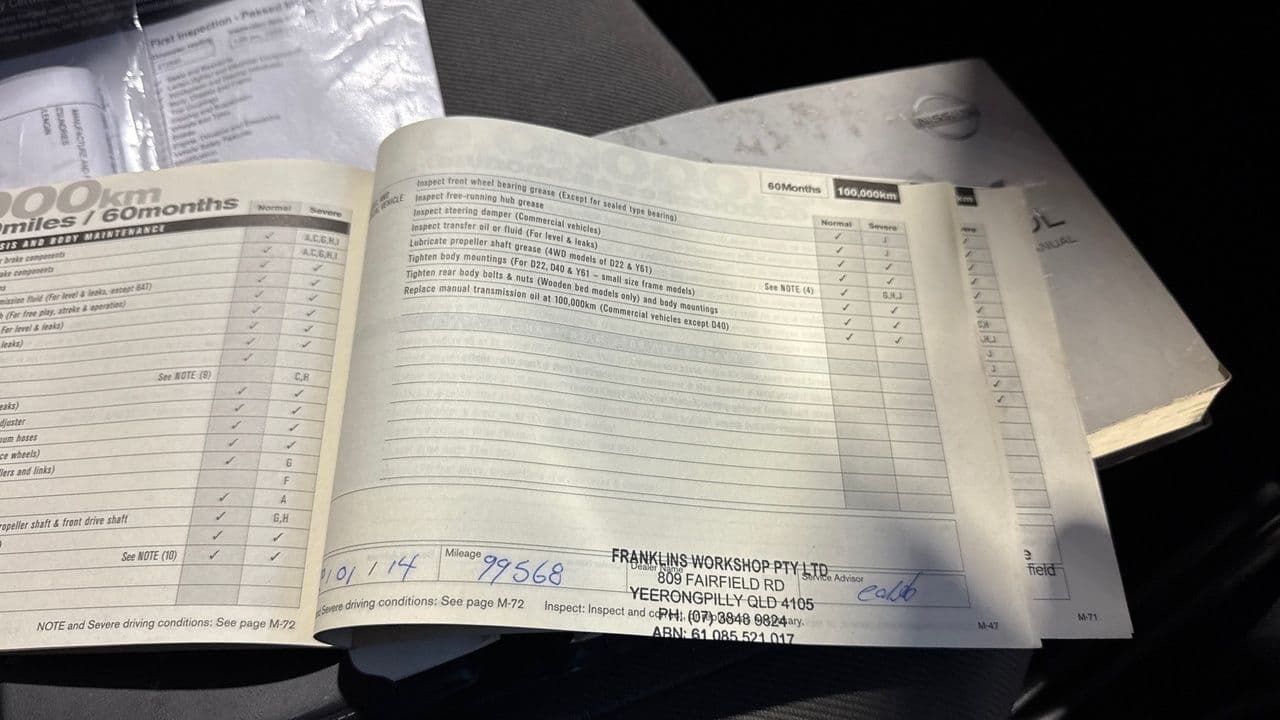 First Inspection - Passed
MANUFACTURE AND
NISSAN
000km
miles / 60months
Normal
Severe
SIS AND BODY MAINTENANCE
brake components
A,C,G,H,I
ake components
A,C,G,H,I
mission fluid (For level & leaks, except BAT)
(For free play, stroke & operation)
For level & leaks)
leaks)
See NOTE (9)
C,H
eaks)
djuster
uum hoses
ce wheels)
G
llers and links)
F
A
ropeller shaft & front drive shaft
G,H
See NOTE (10)
NOTE and Severe driving conditions: See page M-72
VEHICLE
60Months
100,000km
Normal
Severe
Inspect front wheel bearing grease (Except for sealed type bearing)
J
Inspect free-running hub grease
J
Inspect steering damper (Commercial vehicles)
Inspect transfer oil or fluid (For level & leaks)
Lubricate propeller shaft grease (4WD models of D22 & Y61)
See NOTE (4)
G,H,J
Tighten body mountings (For D22, D40 & Y61 – small size frame models)
Tighten rear body bolts & nuts (Wooden bed models only) and body mountings
Replace manual transmission oil at 100,000km (Commercial vehicles except D40)
/01/14
Mileage
99568
Dealer Name
FRANKLINS WORKSHOP PTY LTD
809 FAIRFIELD RD
YEERONGPILLY QLD 4105
PH: (07) 3848 9824
ABN: 61 085 521 017
Service Advisor
Severe driving conditions: See page M-72
Inspect: Inspect and
M-47
km
field
M-71